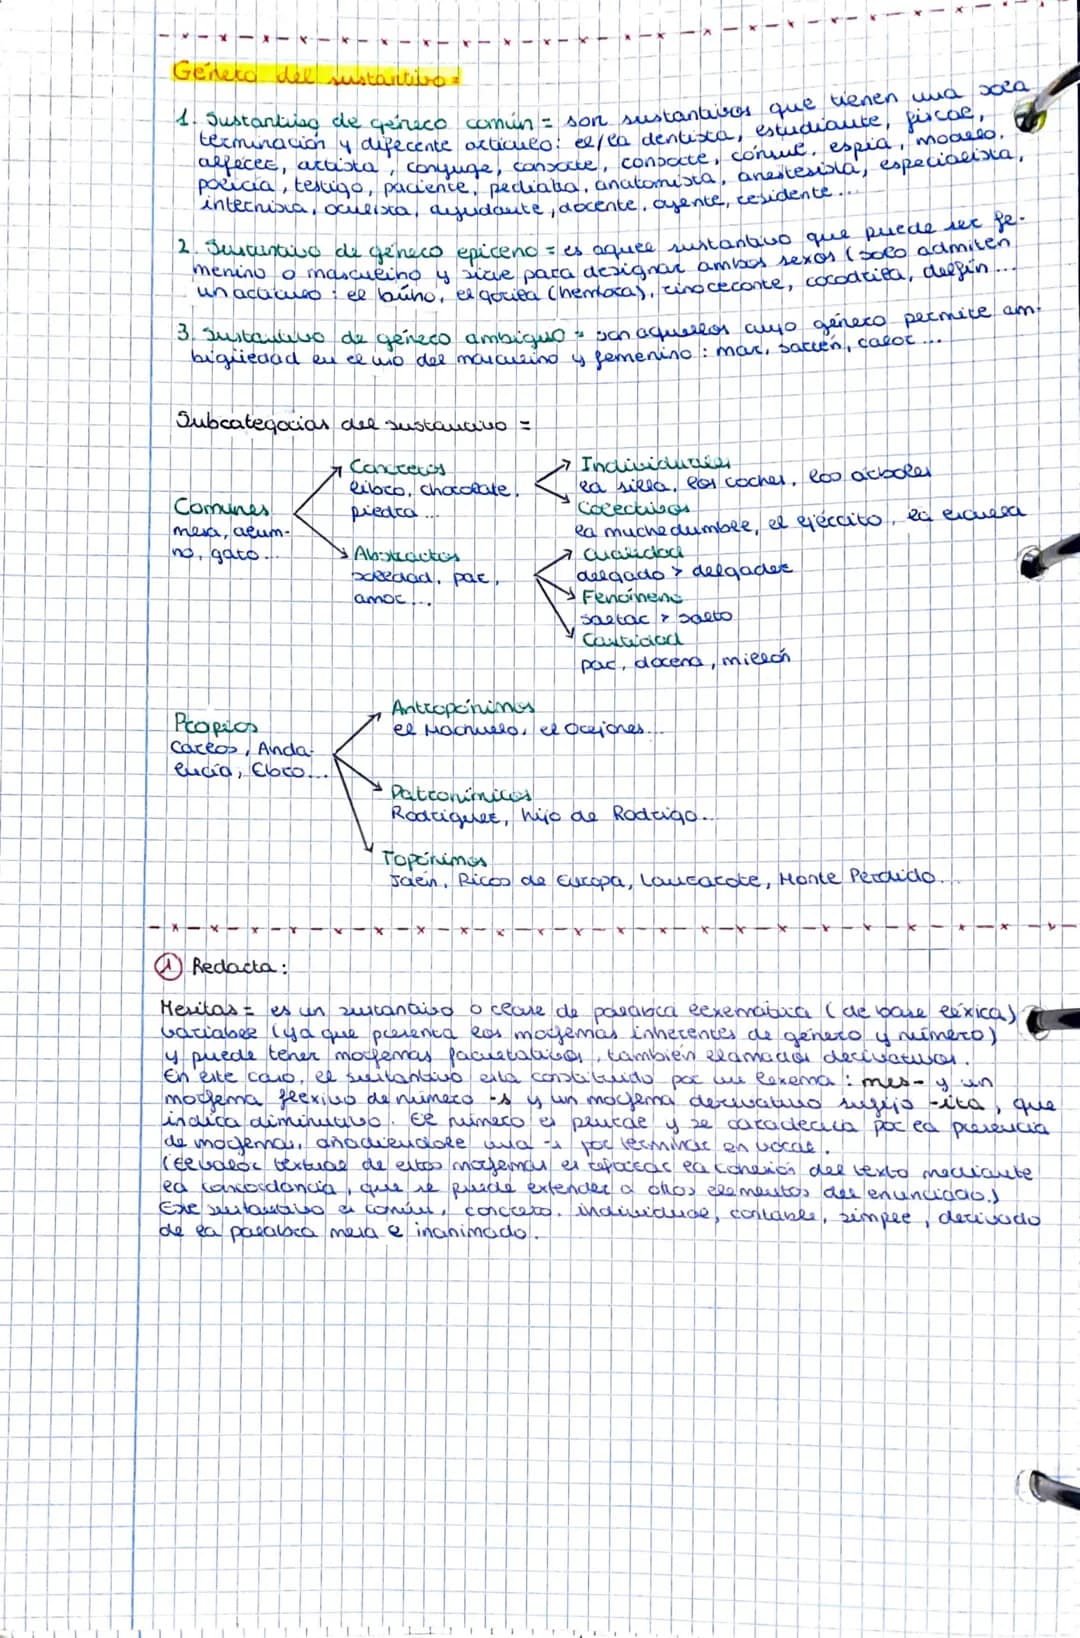 Género del sustantivo =
1. Sustantivo de género común = son sustantivos que tienen una sola
terminación y diferente artículo: el/la dentista, estudiante, fiscal,
alférez, artista, conyuge, consorte, consorte, cónsul, espía, modelo,
policía, testigo, paciente, pediatra, anatomista, anestesista, especialista,
internista, oculista, ayudante, docente, oyente, residente...
2. Sustantivo de género epiceno = es aquel sustantivo que puede ser fe-
menino o masculino y sirve para designar ambos sexos (solo admiten
un artículo: el búho, el gorila (hembra), rinoceronte, cocodrila, delfín...
3. Sustantivo de género ambiguo = son aquellos cuyo género permite am-
bigüedad en el uso del masculino y femenino: mar, sartén, calor...
Subcategorías del sustantivo =
Comunes
mesa, alum-
no, gato...
Concretos
libro, chocolate,
piedra...
Individuales
la silla, los coches, los árboles
Colectivos
la muchedumbre, el ejército, la escuela
Abstractos
soledad, paz,
amor...
Cualidad
delgado > delgadez
Fenómeno
saltar > salto
Cantidad
par, docena, millón
Propios
Carlos, Anda-
lucía, Ebro...
Antropónimos
el Machuelo, el Ocejones...
Patronímicos
Rodríguez, hijo de Rodrigo...
Topónimos
Jaén, Picos de Europa, Lanzarote, Monte Perdido...
1 Redacta:
Mesitas = es un sustantivo o clase de palabra lexemática (de base léxica)
variable (ya que presenta los morfemas inherentes de género y número)
y puede tener morfemas facultativos, también llamados derivativos.
En este caso, el sustantivo está constituido por un lexema: mes- y un
morfema flexivo de número -s y un morfema derivativo sufijo -ita, que
indica diminutivo. El número es plural y se caracteriza por la presencia
de morfemas, añadiendole una -s por terminar en vocal.
(El valor textual de estos morfemas es reforzar la cohesión del texto mediante
la concordancia, que se puede extender a otros elementos del enunciado.)
Este sustantivo es común, concreto, individual, contable, simple, derivado
de la palabra mesa e inanimado.